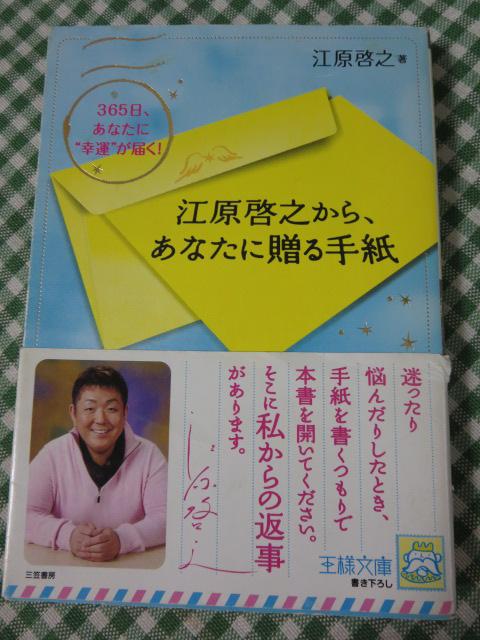 江原啓之 著
365日、
あなたに
"幸運"が届く!
江原啓之から、
あなたに贈る手紙
迷ったり
悩んだりしたとき、
手紙を書くつもりで
本書を開いてください。
そこに私からの返事
があります。
江原啓之
三笠書房
王様文庫
書き下ろし